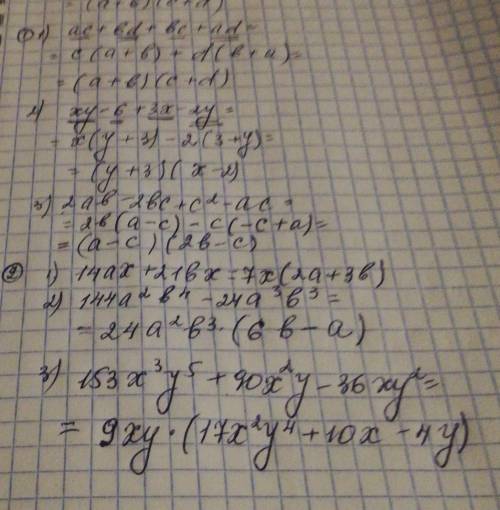 = (a+b)(c+d)
① 1) ac + bd + bc + ad =
= c(a+b) + d(b+a) =
= (a+b)(c+d)
2) xy - 6 + 3x - 2y =
= x(y+3) - 2(3+y) =
= (y+3)(x-2)
3) 2ab - 2bc + c² - ac =
= 2b(a-c) - c(-c+a) =
= (a-c)(2b-c)
② 1) 14ax + 21bx = 7x(2a+3b)
2) 144a²b⁴ - 24a³b³ =
= 24a²b³·(6b-a)
3) 153x³y⁵ + 90x²y - 36xy² =
= 9xy·(17x²y⁴ + 10x - 4y)